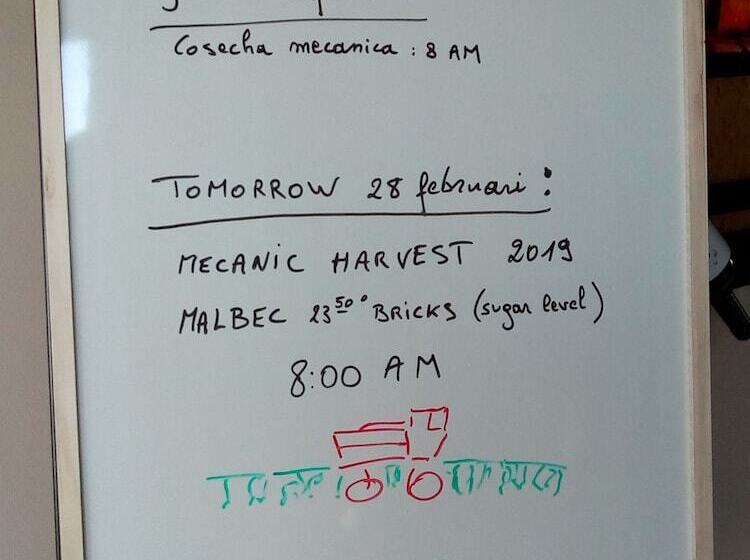 Cosecha mecanica : 8 AM
TOMORROW 28 februari :
MECANIC HARVEST 2019
MALBEC 23⁵⁰° BRICKS (sugar level)
8:00 AM